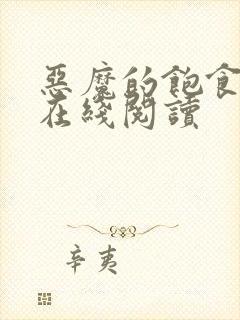 惡魔的飽食
在綫閱讀
辛夷